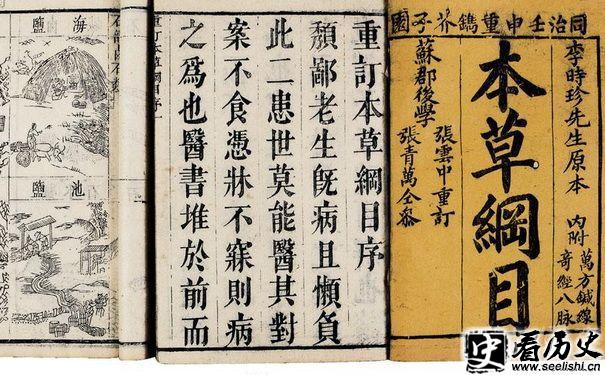 同治壬申重鐫芥子園
李時珍先生原本
內附
萬方鍼線
奇經八脉
本草綱目
蘇郡後學
張雲中重訂
張青萬仝參
重訂本草綱目序
頽鄙老生旣病且懶負
此二患世莫能醫其對
案不食憑牀不寐則病
之爲也醫書堆於前而
重訂本草綱目序
海鹽
池鹽
看历史
www.seelishi.cn